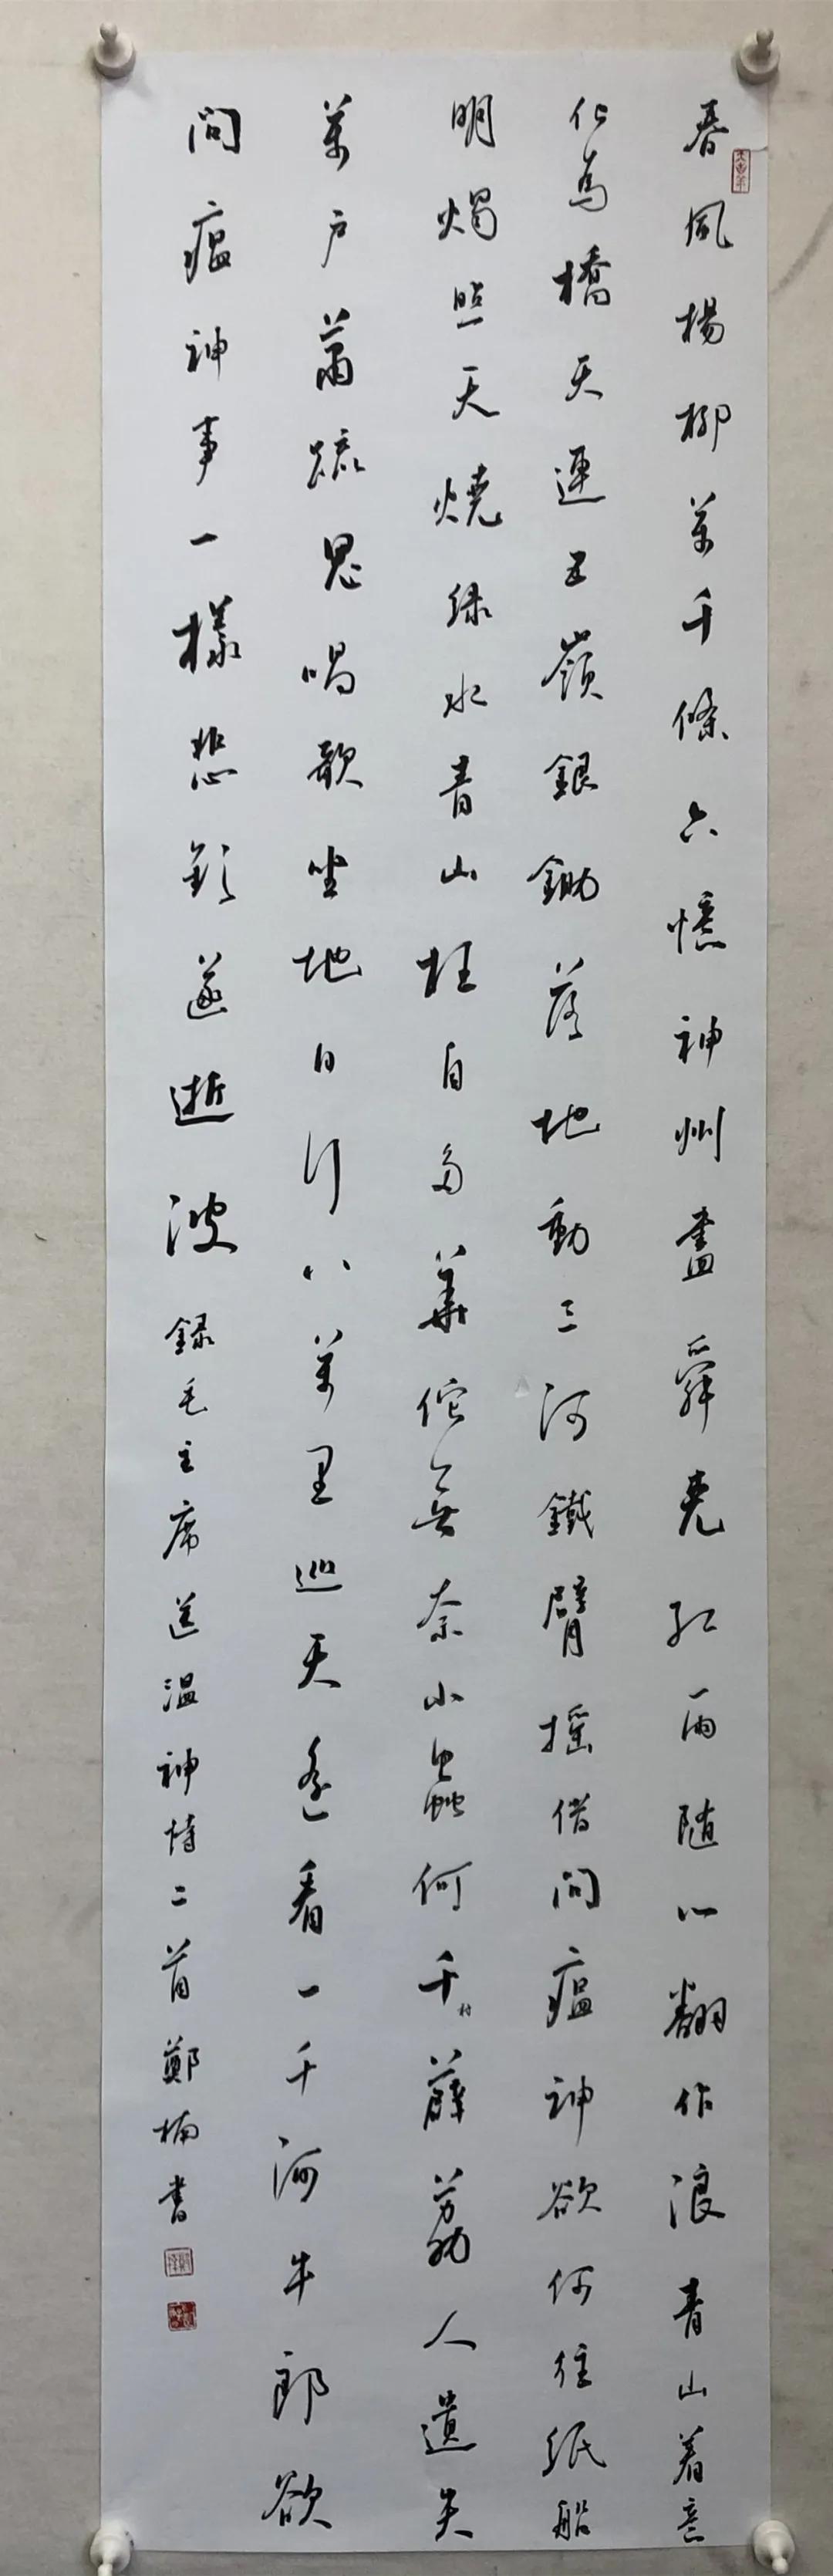 春風楊柳萬千條六億神州盡舜堯紅雨随心翻作浪青山着意
化為橋天連五嶺銀鋤落地動三河鐵臂摇借問瘟神欲何往紙船
明燭照天燒绿水青山枉自多華佗無奈小蟲何千村薜荔人遺矢
萬户蕭疏鬼唱歌坐地日行八萬里巡天遥看一千河牛郎欲
問瘟神事一樣悲歡逐逝波
録毛主席送温神詩二首鄭楠書